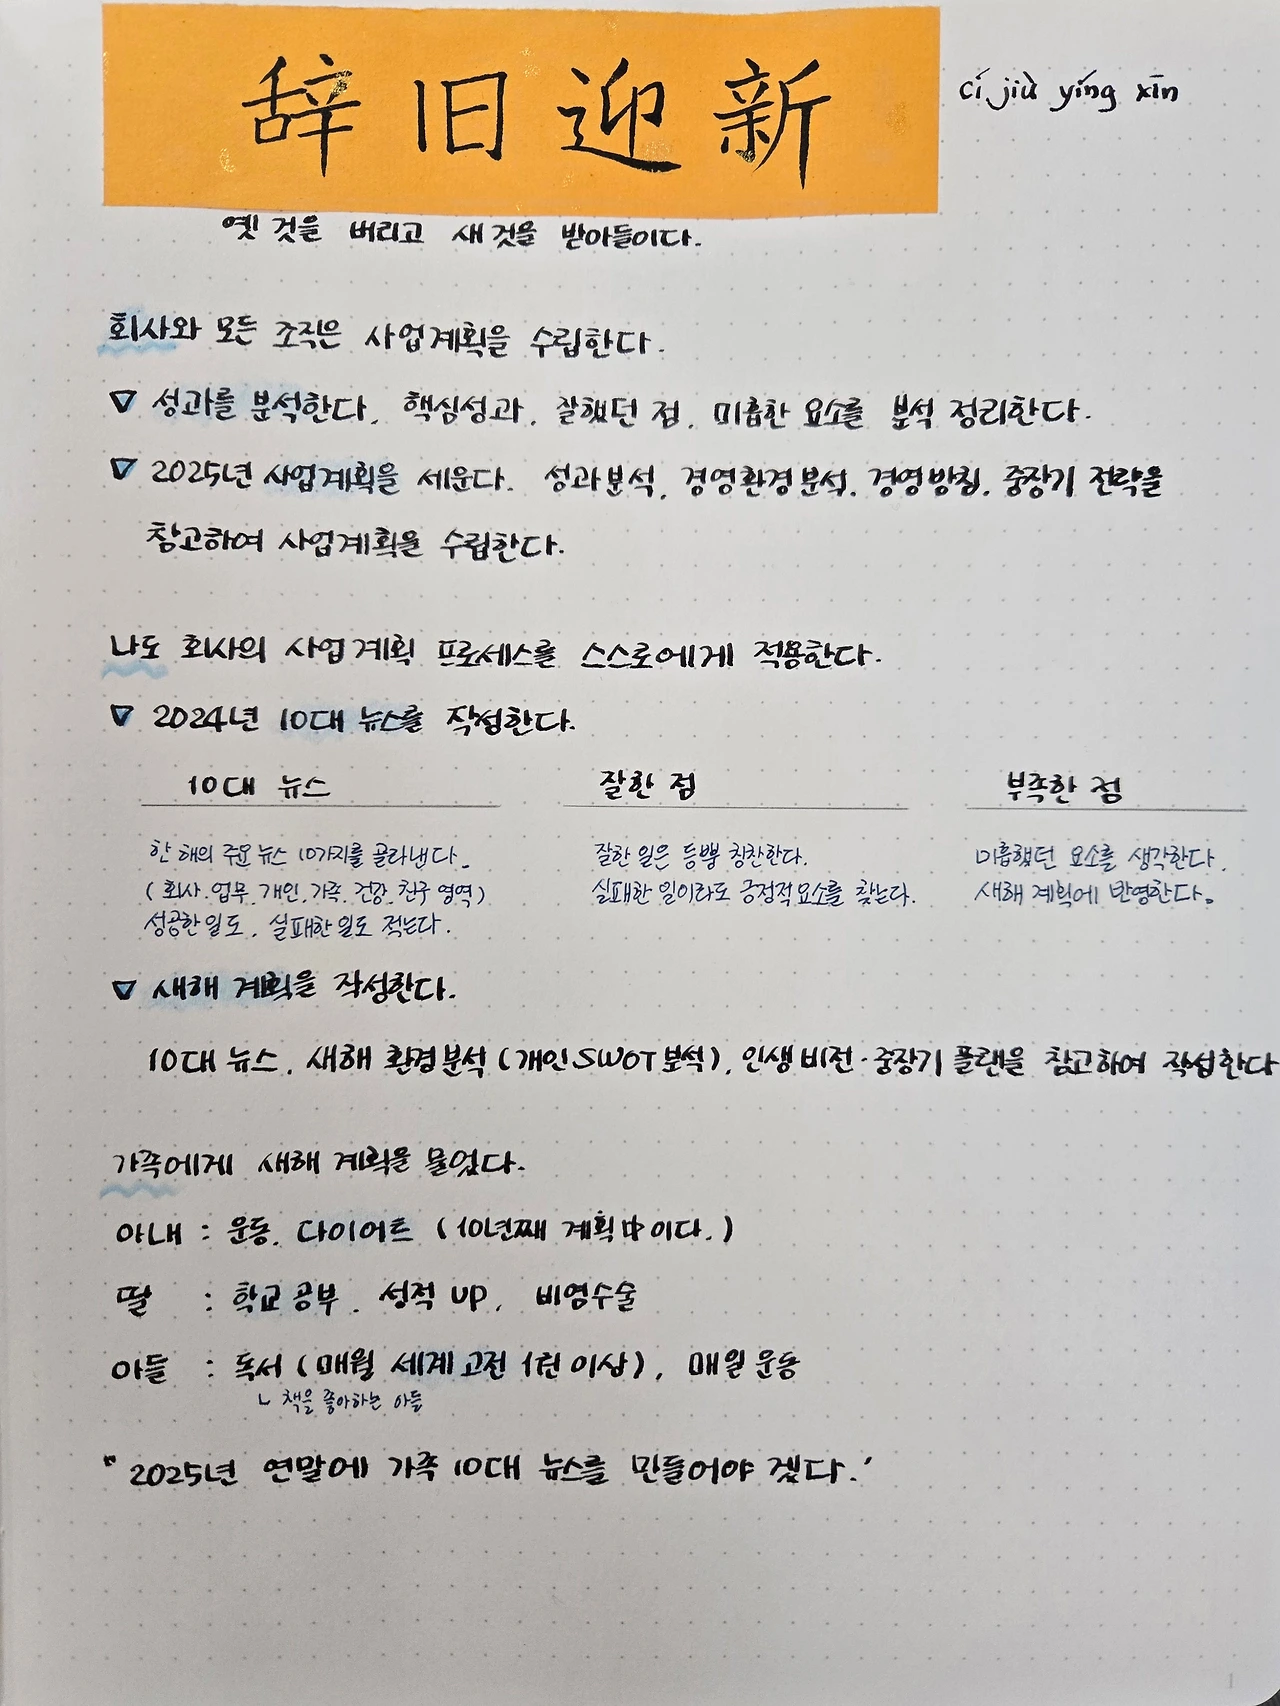 辞旧迎新 cí jiù yíng xīn
옛 것을 버리고 새것을 받아들이다.
회사와 모든 조직은 사업계획을 수립한다.
▽ 성과를 분석한다. 핵심성과, 잘했던 점, 미흡한 요소를 분석 정리한다.
▽ 2025년 사업계획을 세운다. 성과분석, 경영환경분석, 경영방침, 중장기 전략을
참고하여 사업계획을 수립한다.
나도 회사의 사업계획 프로세스를 스스로에게 적용한다.
▽ 2024년 10대 뉴스를 작성한다.
10대 뉴스 잘한 점 부족한 점
한 해의 주요 뉴스 10가지를 골라낸다. 잘한 일은 듬뿍 칭찬한다. 미흡했던 요소를 생각한다.
(회사.업무.개인.가족.건강.친구 영역) 실패한 일이라도 긍정적요소를 찾는다. 새해 계획에 반영한다.
성공한 일도, 실패한 일도 적는다.
▽ 새해 계획을 작성한다.
10대 뉴스, 새해 환경분석 (개인SWOT분석), 인생비전·중장기 플랜을 참고하여 작성한다
가족에게 새해 계획을 물었다.
아내 : 운동, 다이어트 (10년째 계획中이다.)
딸 : 학교 공부, 성적 UP, 비염수술
아들 : 독서 (매월 세계고전 1권 이상), 매일 운동
ㄴ 책을 좋아하는 아들
"2025년 연말에 가족 10대 뉴스를 만들어야 겠다.'
1